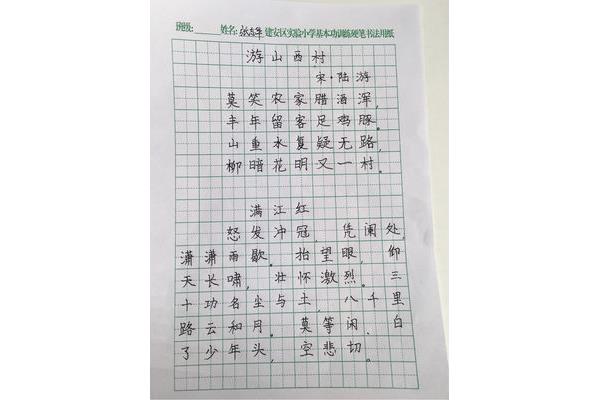 班级: 姓名: 建安区实验小学基本功训练硬笔书法用纸
游山西村
宋·陆游
莫笑农家腊酒浑,
丰年留客足鸡豚。
山重水复疑无路,
柳暗花明又一村。
满江红
怒发冲冠, 凭阑处,
潇潇雨歇。抬望眼, 仰
天长啸, 壮怀激烈。三
十功名尘与土, 八千里
路云和月。莫等闲、白
了少年头, 空悲切。